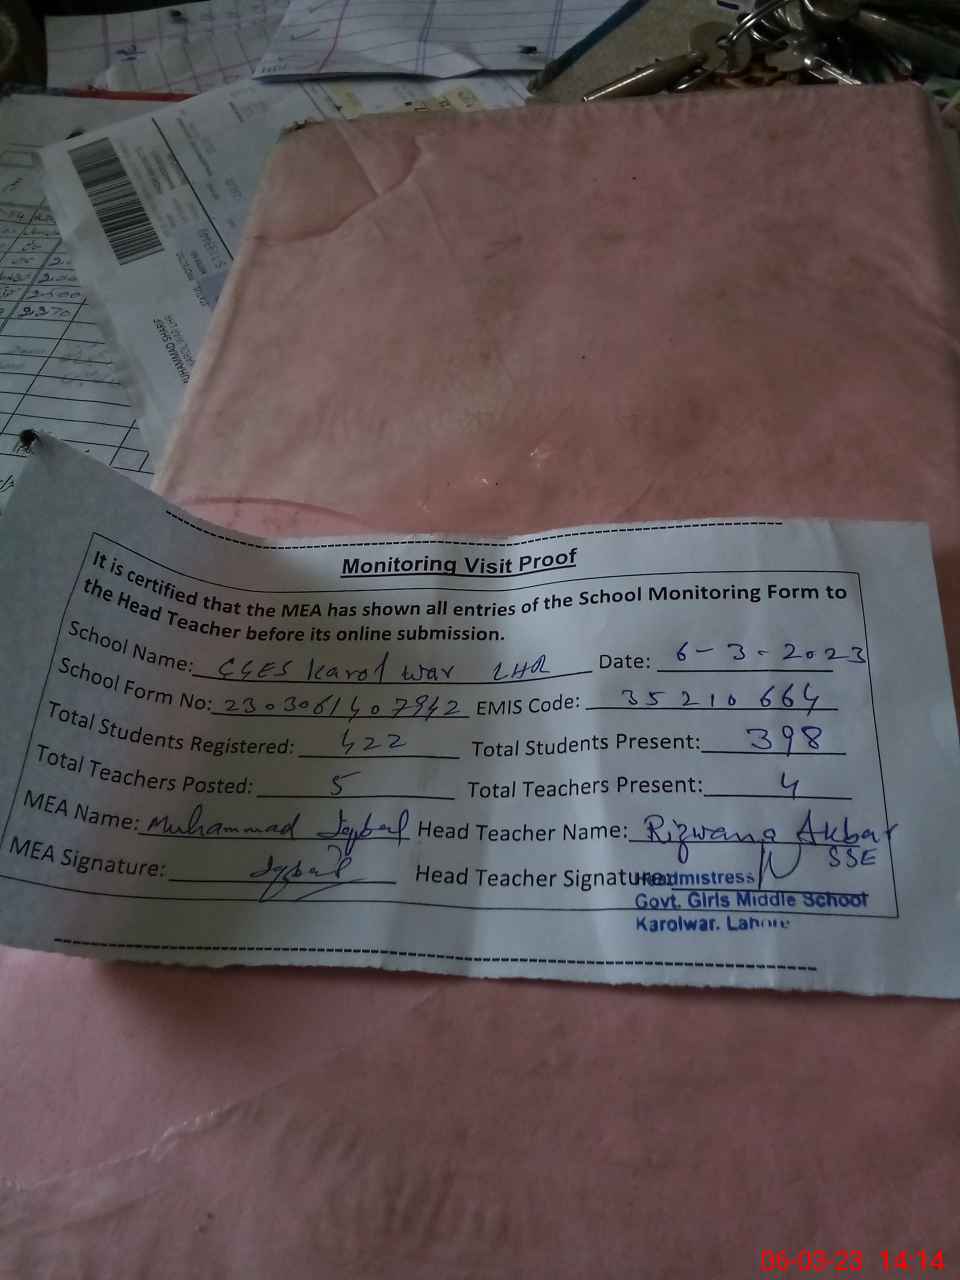 MUHAMMAD SHARIF
2370
Monitoring Visit Proof
It is certified that the MEA has shown all entries of the School Monitoring Form to
the Head Teacher before its online submission.
School Name: GGES Karol War LHR Date: 6-3-2023
School Form No: 230306140 7942 EMIS Code: 35210664
Total Students Registered: 422 Total Students Present: 398
Total Teachers Posted: 5 Total Teachers Present: 4
MEA Name: Muhammad Iqbal Head Teacher Name: Rizwana Akbar
SSE
MEA Signature: Iqbal Head Teacher Signature:
Headmistress
Govt. Girls Middle School
Karolwar. Lahore
06-03-23 14:14